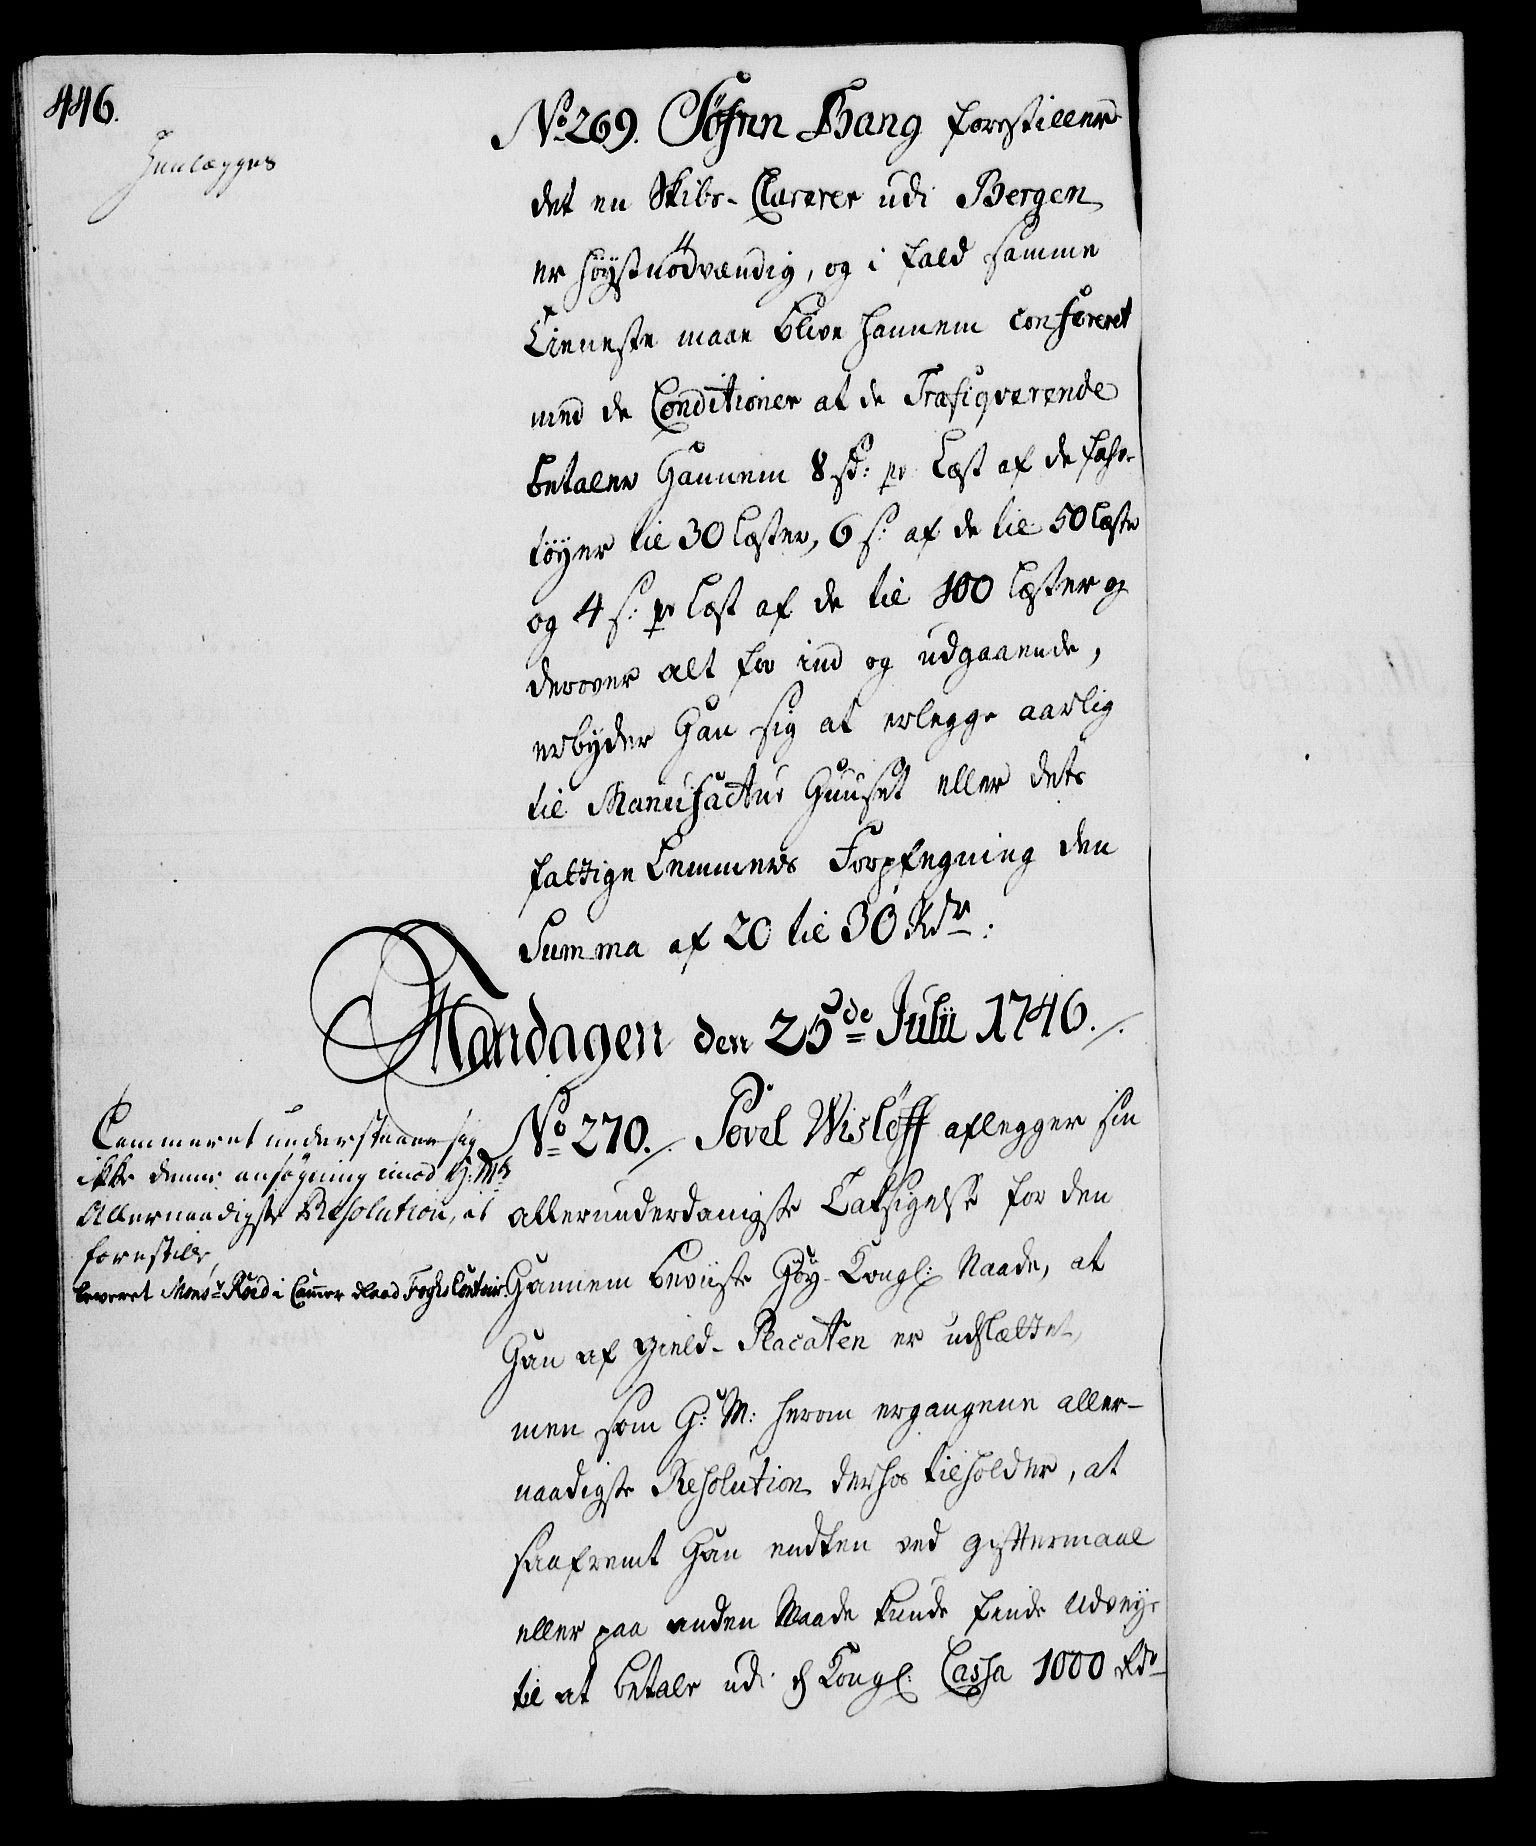 446.
Henlægges
No 269. Söfren Bang forestiller
det en Skibs-Clarerer udi Bergen
er höystnödvændig, og i fald samme
Tieneste maae blive hannem confereret
med de Conditioner at de Trafiqverende
betaler hannem 8 sz: pr Læst af de fahr-
töyer til 30 Læster, 6 s: af de til 50 Læster
og 4 s: pr Læst af de til 100 Læster og
derover alt for ind og udgaaende,
erbyder han sig at erlegge aarlig
til Manufactur Huuset eller dets
fattige Lemmers Forpflegning den
Summa af 20 til 30 Rdr:
Mandagen den 25de Julii 1746.
Cammeret understaaer sig
ikke denne ansögning imod H: Ms
Allernaadigste Resolution, at
forestille,
leveret Monsr Roed i Cammer Raad Foghs Contoir.
No 270. Povel Wislöff aflegger sin
allerunderdanigste Taksigelse for den
hannem beviiste Höy-Kongl: Naade, at
han af Gield-Placaten er udslættet,
men som H: M: herom ergangene aller-
naadigste Resolution derhos tilholder, at
saafremt han endten ved gifttermaal
eller paa anden Maade kunde finde Udveye
til at betale udi d Kongl: Cassa 1000 Rdr